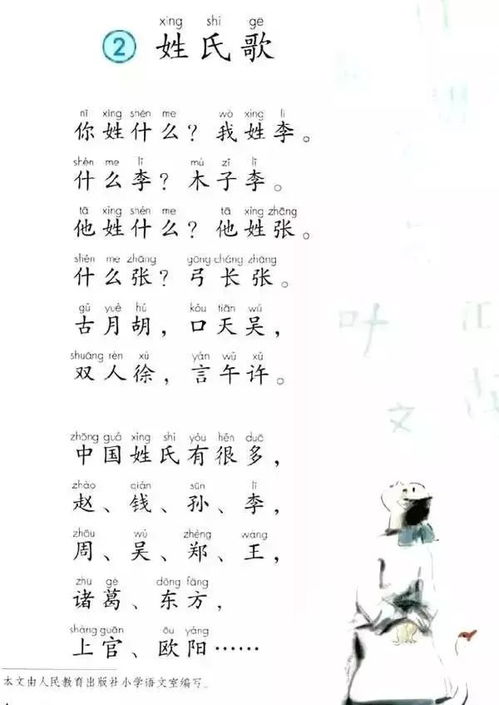 xìng shì gē
2 姓氏歌
nǐ xìng shén me wǒ xìng lǐ
你姓什么？我姓李。
shén me lǐ mù zǐ lǐ
什么李？木子李。
tā xìng shén me tā xìng zhāng
他姓什么？他姓张。
shén me zhāng gōng cháng zhāng
什么张？弓长张。
gǔ yuè hú kǒu tiān wú
古月胡，口天吴，
shuāng rén xú yán wǔ xǔ
双人徐，言午许。
zhōng guó xìng shì yǒu hěn duō
中国姓氏有很多，
zhào qián sūn lǐ
赵、钱、孙、李，
zhōu wú zhèng wáng
周、吴、郑、王，
zhū gě dōng fāng
诸葛、东方，
shàng guān ōu yáng
上官、欧阳……
本文由人民教育出版社小学语文室编写。